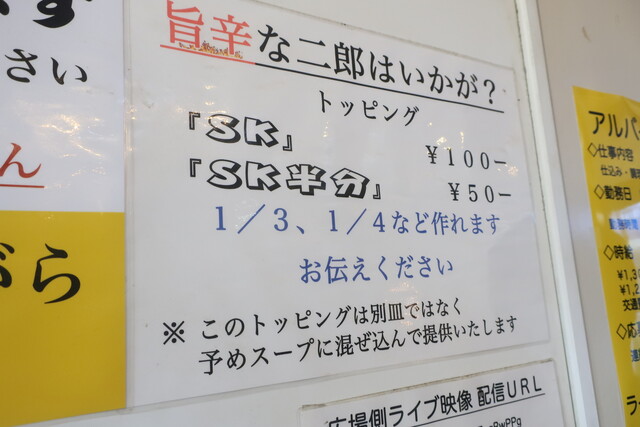 さい
ん
がら
旨辛な二郎はいかが?
トッピング
『SK』 ¥100−
『SK半分』 ¥50−
1/3、1/4など作れます
お伝えください
※ このトッピングは別皿ではなく
予めスープに混ぜ込んで提供いたします
広場側ライブ映像 配信URL
アルバ
◇仕事内容
仕込み・
◇勤務日
勤務時間
◇時給
¥1,3
¥1,2
交通
◇応